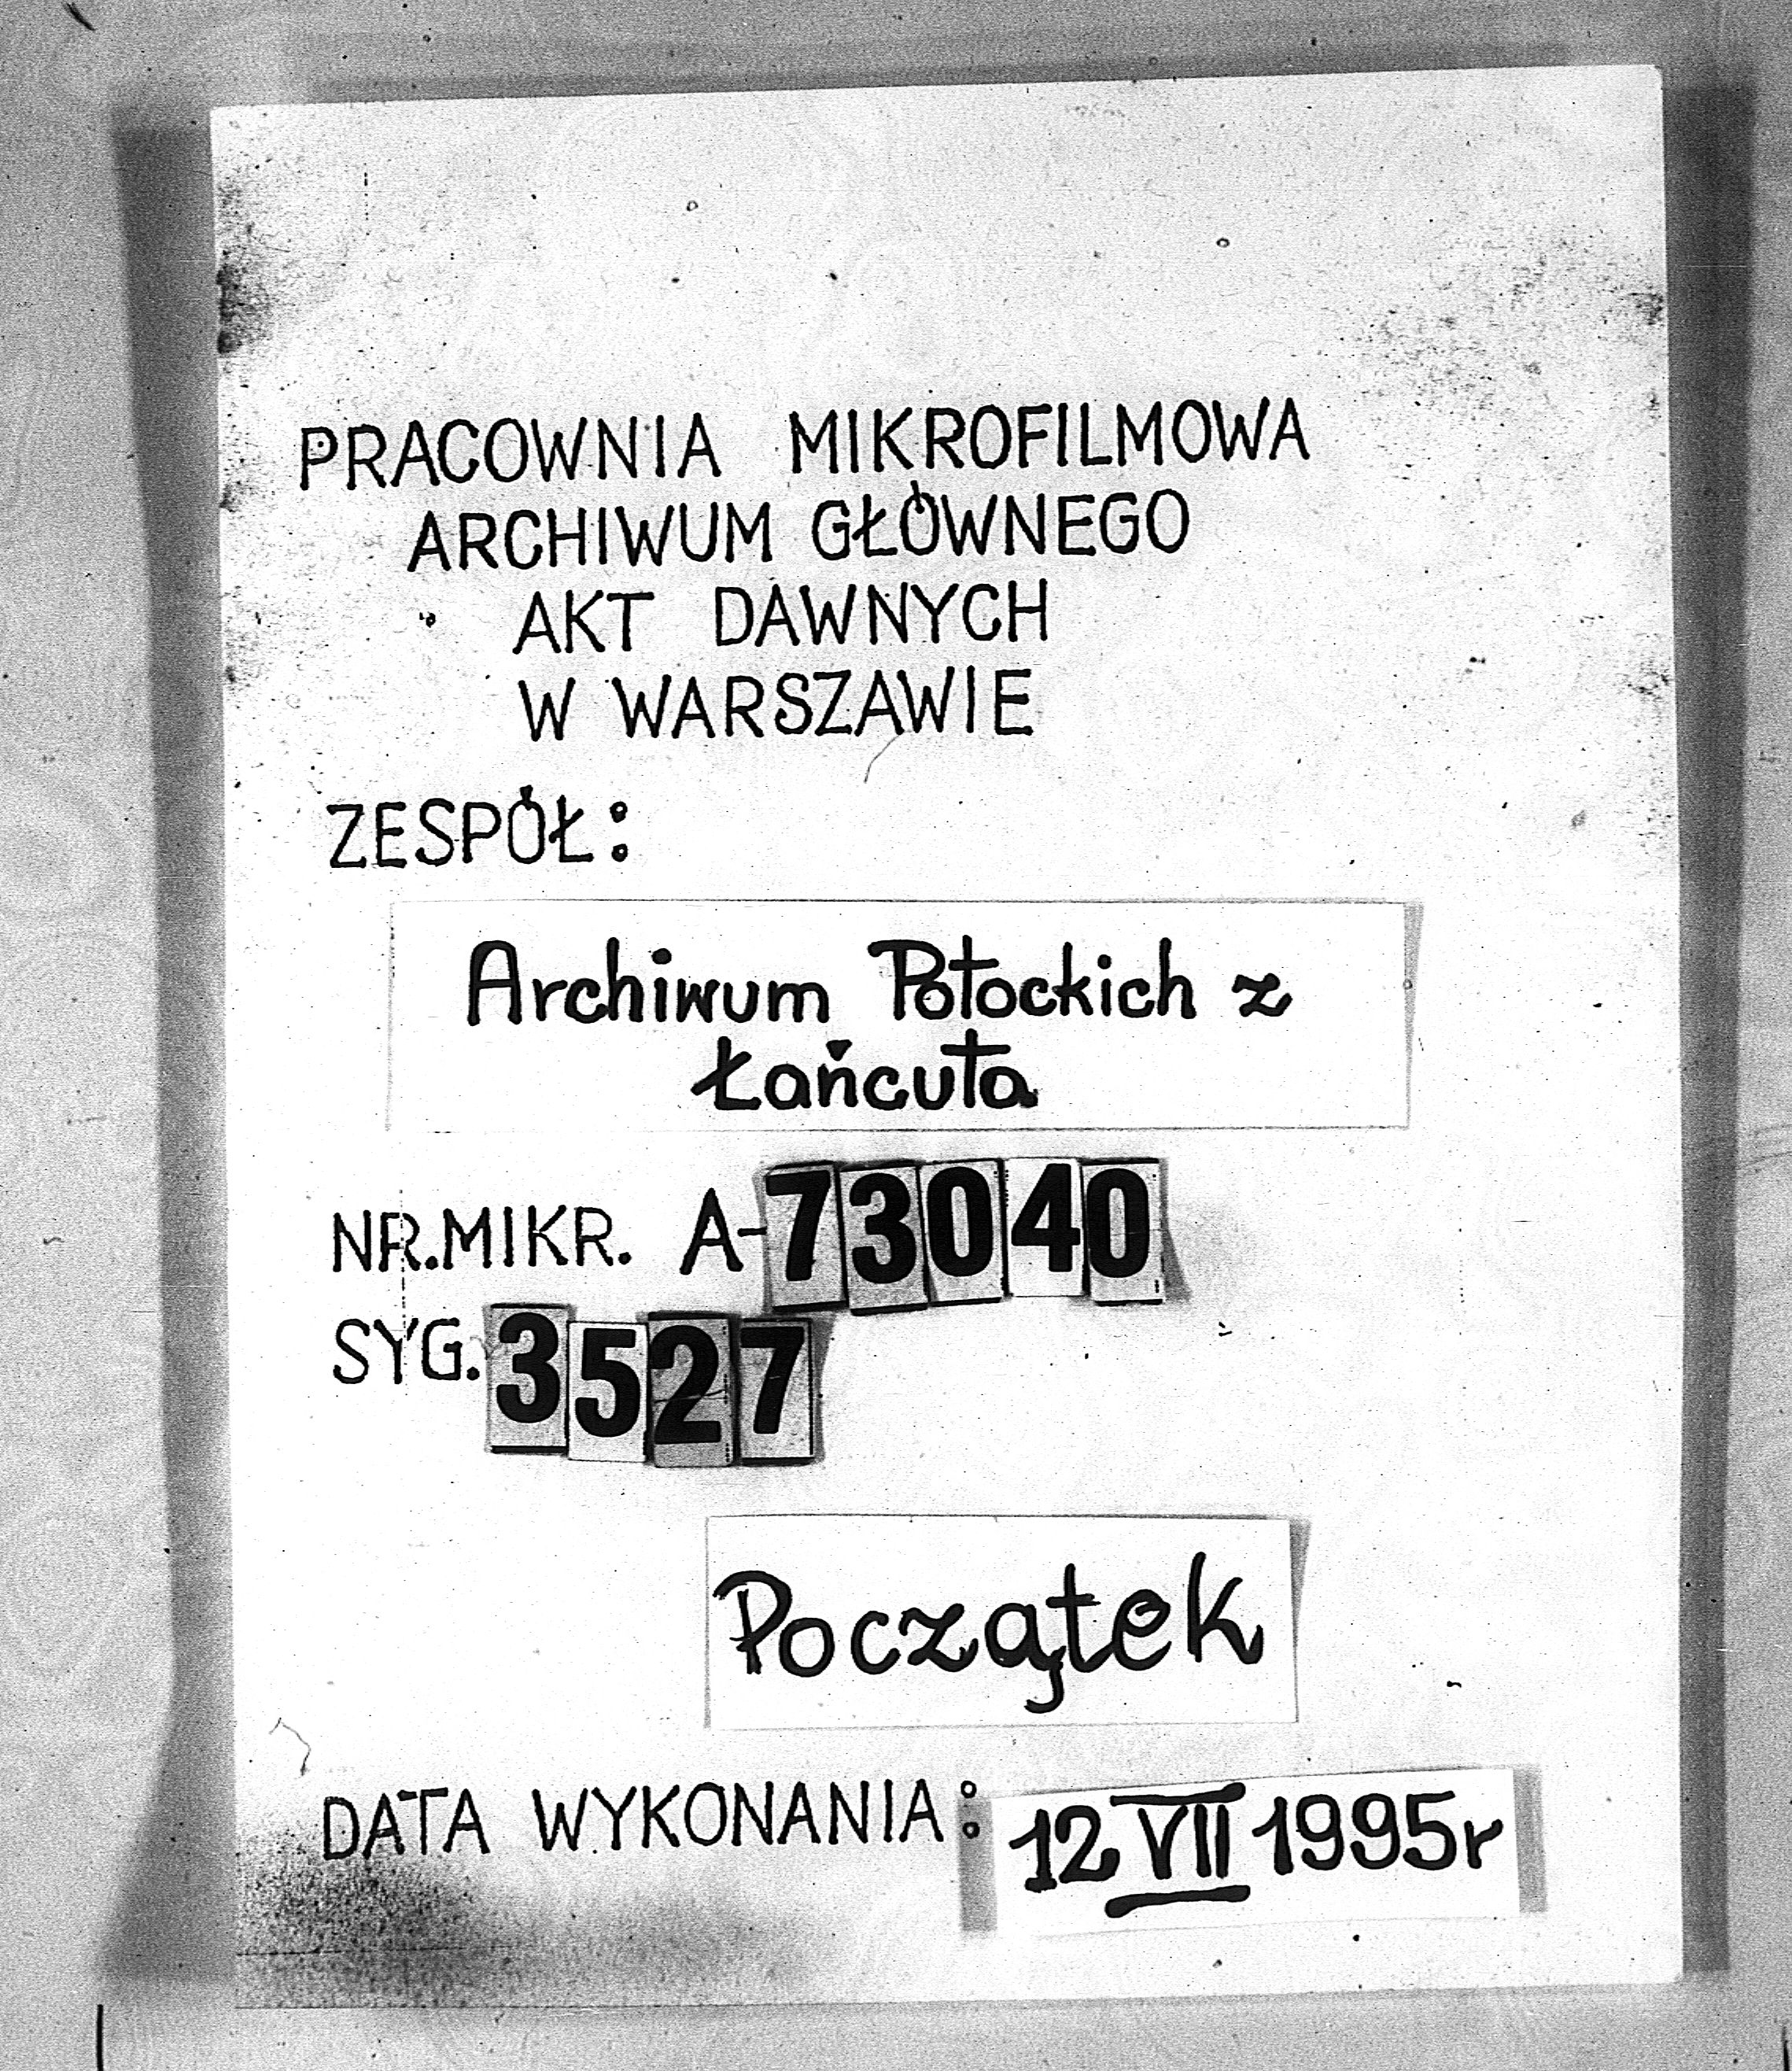 PRACOWNIA MIKROFILMOWA
ARCHIWUM GŁÓWNEGO
AKT DAWNYCH
W WARSZAWIE
ZESPÓŁ:
Archiwum Potockich z
Łańcuta
NR.MIKR. A-73040
SYG. 3527
Początek
DATA WYKONANIA: 12 VII 1995r